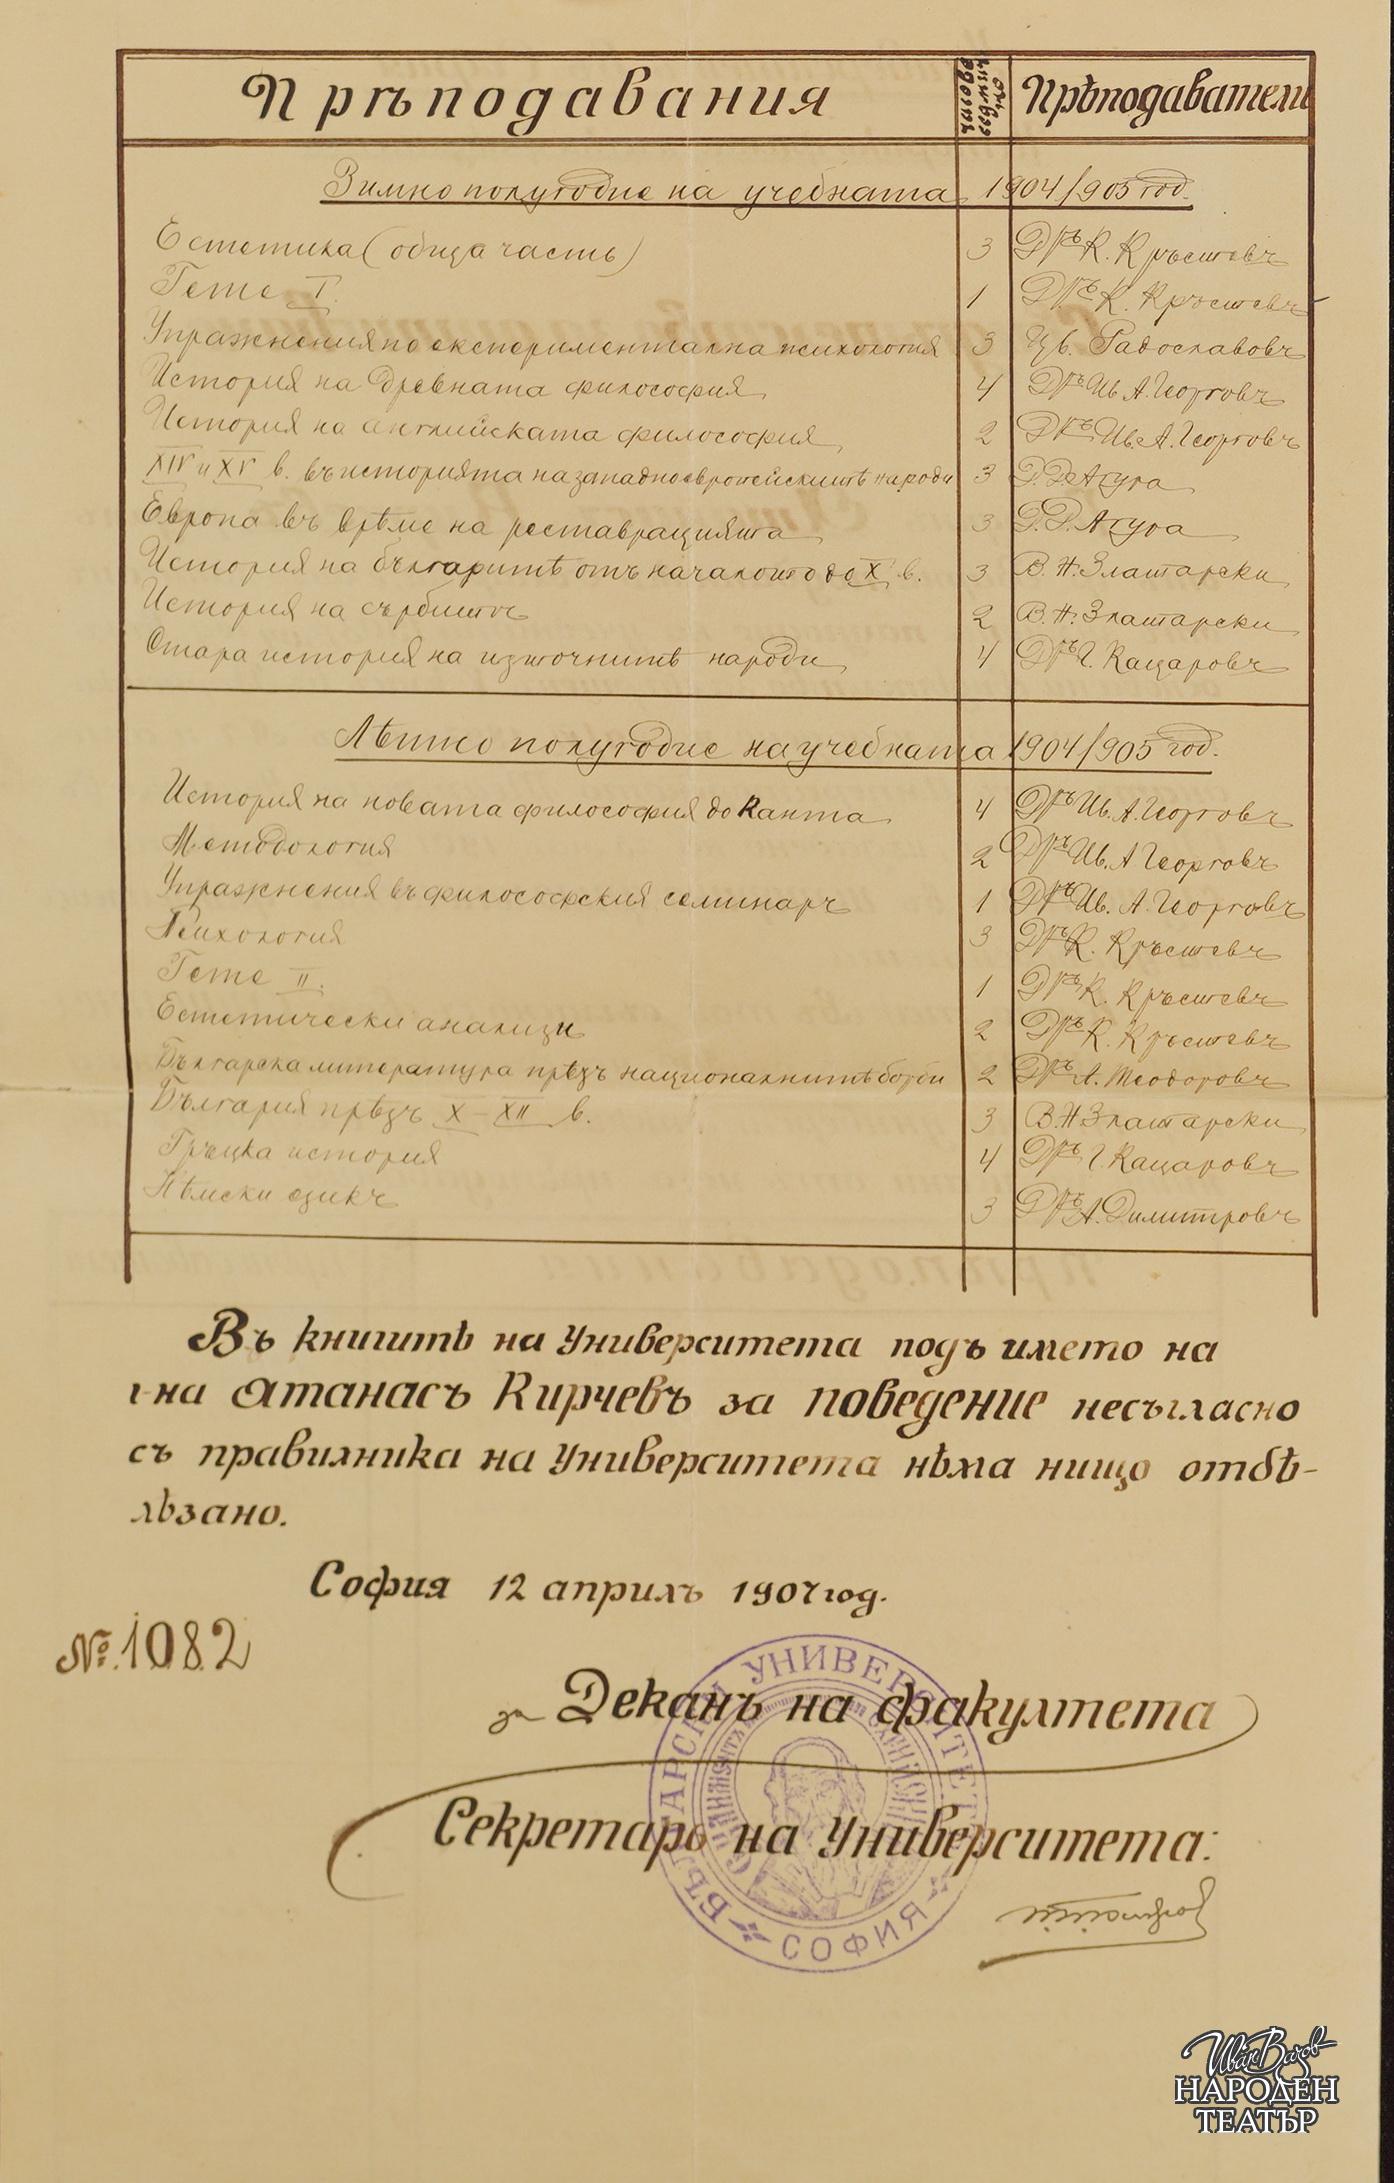 Прѣподавания
Прѣподаватели
Зимно полугодие на учебната 1904/905 год.
Естетика (обща часть) 3 Дръ К. Кръстевъ
Гете I. 1 Дръ К. Кръстевъ
Упражнения по експериментална психология 3 Цв. Радославовъ
История на древната философия 4 Дръ Ив. А. Георговъ
История на английската философия 2 Дръ Ив. А. Георговъ
XIV и XV в. въ историята на западноевропейскитѣ народи 3 Д. Д. Агура
Европа въ врѣме на реставрацията 3 Д. Д. Агура
История на българитѣ отъ началото до X в. 3 В. Н. Златарски
История на сърбитѣ 2 В. Н. Златарски
Стара история на източнитѣ народи 4 Дръ Г. Кацаровъ
Лѣтно полугодие на учебната 1904/905 год.
История на новата философия до Канта 4 Дръ Ив. А. Георговъ
Методология 2 Дръ Ив. А. Георговъ
Упражнения въ философския семинаръ 1 Дръ Ив. А. Георговъ
Психология 3 Дръ К. Кръстевъ
Гете II. 1 Дръ К. Кръстевъ
Естетически анализи 2 Дръ К. Кръстевъ
Българска литература прѣзъ националнитѣ борби 2 Дръ А. Теодоровъ
България прѣзъ X – XII в. 3 В. Н. Златарски
Гръцка история 4 Дръ Г. Кацаровъ
Нѣмски езикъ 3 Дръ А. Димитровъ
Въ книгитѣ на Университета подъ името на
г-на Атанасъ Кирчевъ за поведение несъгласно
съ правилника на Университета нѣма нищо отбѣ-
лѣзано.
София 12 априлъ 1907 год.
№ 1082
за Деканъ на факултета
Секретарь на Университета:
БЪЛГАРСКИ УНИВЕРСИТЕТ
СОФИЯ
Иван Вазов
НАРОДЕН
ТЕАТЪР